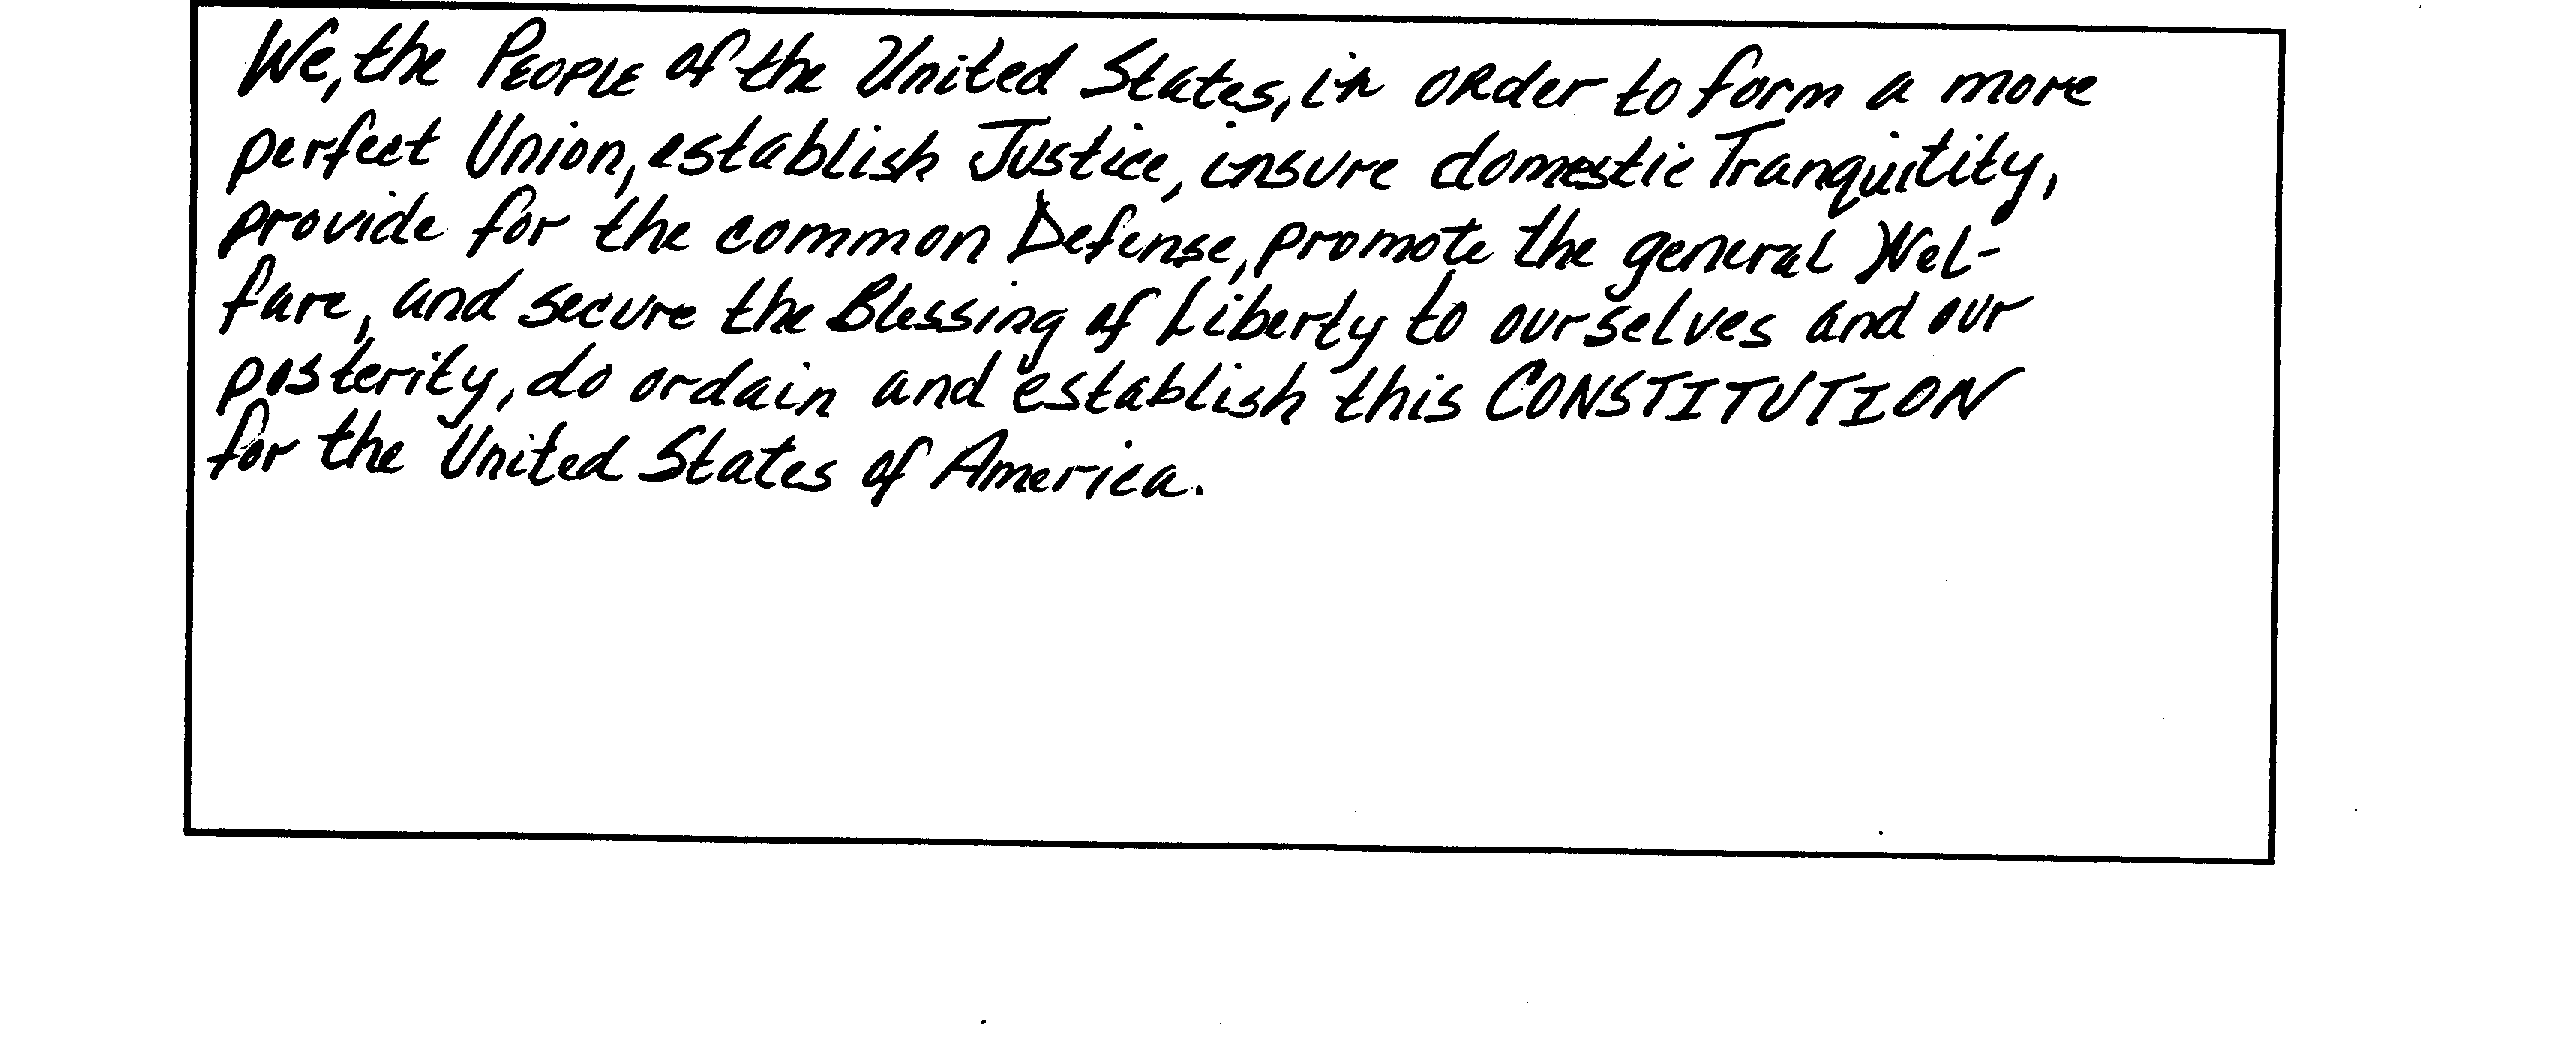 We, the PEOPLE of the United States, in ORder to form a more
perfect Union, establish Justice, insure domestic Tranquitity,
provide for the common Defense, promote the general Wel-
fare, and secure the Blessing of Liberty to ourselves and our
posterity, do ordain and establish this CONSTITUTION
for the United States of America.